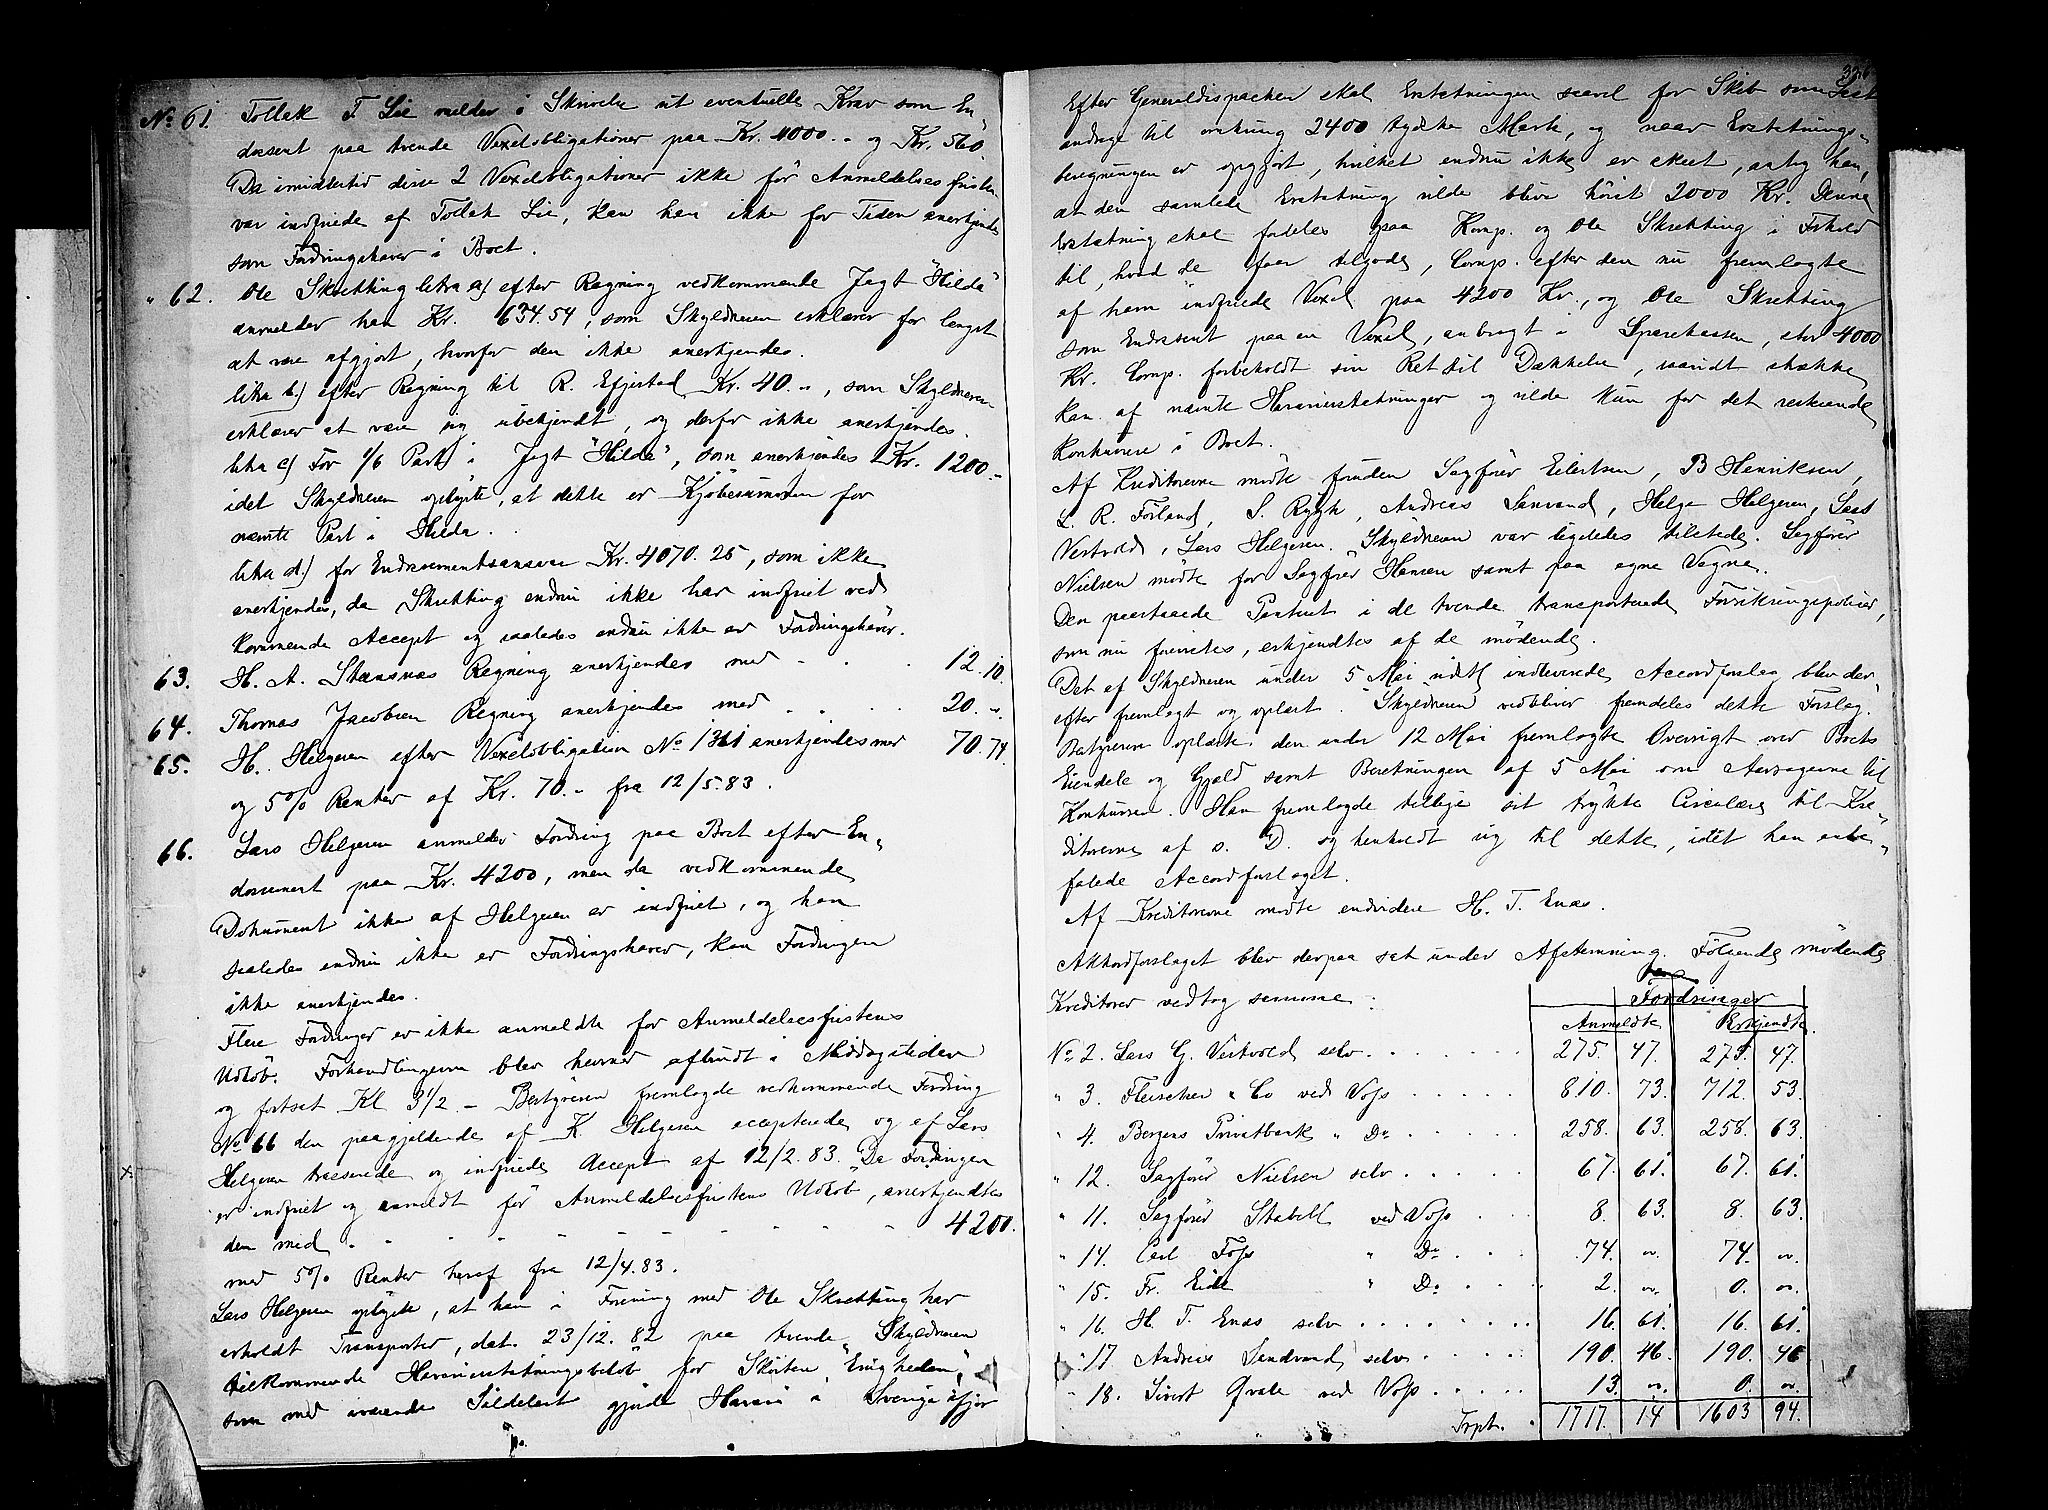 No 61. Tollak T Lie melder i Skrivelse et eventuelle Krav som En-
dosent paa tvende Vexelobligationer paa Kr. 4000.- og Kr. 560.
Da imidlertid disse 2 Vexelobligationer ikke før Anmeldelsesfristen
var indfriede af Tollak Lie, kan han ikke for Tiden anerkjendes
som Fordringshaver i Boet.
" 62. Ole Skretting litra a) efter Regning vedkommende Jagt "Hilda"
anmelder han Kr. 634.54, som Skyldneren erklærer for længst
at være afgjort, hvorfor den ikke anerkjendes.
litra b.) efter Regning til R. Efjestad Kr. 40.-, som Skyldneren
erklærer at være sig ubekjendt, og derfor ikke anerkjendes.
litra c) For 1/6 Part i Jagt "Hilda", som anerkjendes Kr. 1200.-
idet Skyldneren oplyste, at dette er Kjøbesummen for
nævnte Part i Hilda.
litra d.) for Endossementsansvar Kr. 4070.25, som ikke
anerkjendes, da Skretting endnu ikke har indfriet ved
kommende Accept og saaledes endnu ikke er Fordringshaver.
63. H. A. Stensnæs Regning anerkjendes med . . . 12.10.
64. Thomas Jacobsen Regning anerkjendes med . . . 20.-.
65. H. Helgesen efter Vexelobligation No 1361 anerkjendes med 70.74.
og 5% Renter af Kr. 70.- fra 12/5.83.
66. Lars Helgesen anmelder Fordring paa Boet efter En-
dossement paa Kr. 4200, men da vedkommende
Dokument ikke af Helgesen er indfriet, og han
saaledes endnu ikke er Fordringshaver, kan Fordringen
ikke anerkjendes.
Flere Fordringer er ikke anmeldte før Anmeldelsesfristens
Udløb. Forhandlingerne blev herunder afbrudt i Middagstiden
og fortsat Kl 3 1/2. - Bestyreren fremlagde vedkommende Fordring
No 66 den paagjeldende af K. Helgesen accepterede og af Lars
x. Helgesen trasserede og indfriede Accept af 12/2.83. Da Fordringen
er indfriet og anmeldt før Anmeldelsesfristens Udløb, anerkjendtes
den med . . . 4200.
med 5% Renter heraf fra 12/4.83.
Lars Helgesen oplyste, at han i Forening med Ole Skretting har
erholdt Transporter, dat. 23/12.82 paa tvende, Skyldneren
tilkommende Havarierstatningsbeløb for Skøiten "Enigheden",
som med Sildelast gjorde Havari i Sverige ifjor
Efter Generaldispachen skal Erstatningen saavel for Skib som Last
andrage til omkring 2400 tydske Mark, og naar Erstatnings-
beregningen er opgjort, hvilket endnu ikke er skeet, antog han,
at den samlede Erstatning vilde blive høist 2000 Kr. Denne
Erstatning skal fordeles paa Komp. og Ole Skretting i Forhold
til, hvad de faar tilgode, Comp. efter den nu fremlagte
af ham indfriede Vexel paa 4200 Kr., og Ole Skretting
som Endossent paa en Vexel, anbragt i Sparekassen, stor 4000
Kr. Comp. forbeholdt sin Ret til Dækkelse, saavidt strække
kan af nævnte Havarierstatninger og vilde kun for det resterende
konkurrere i Boet.
Af Kreditorerne mødte foruden Sagfører Eilertsen, B Henriksen,
L. R. Førland, S. Rygh, Andreas Sandvand, Helge Helgesen, Lars
Vestvold, Lars Helgesen. Skyldneren var ligeledes tilstede. Sagfører
Nielsen mødte for Sagfører Hansen samt paa egne Vegne.
Den paastaaede Panteret i de tvende transporterede Forsikringspoliser,
som nu foreviste, erkjendtes af de mødende.
Det af Skyldneren under 5 Mai sidstl indleverede Accordforslag blev der-
efter fremlagt og oplæst. Skyldneren vedbliver fremdeles dette Forslag.
Bestyreren oplæste den under 12 Mai fremlagte Oversigt over Boets
Eiendele og Gjæld samt Beretningen af 5 Mai om Aarsagerne til
Konkursen. Han fremlagde tillige sit trykte Circulære til Kre-
ditorerne af s. D. og henholdt sig til dette, idet han anbe-
falede Accordforslaget.
Af Kreditorerne mødte endvidere H. T. Enæs.
Akkordforslaget blev derpaa sat under Afstemning. Følgende mødende
Kreditorer vedtog samme: Fordringer
Anmeldte Erkjendte
No 2. Lars G. Vestvold selv . . . 275. 47. 275. 47.
" 3. Fleischer & Co ved Voss . . . 810. 73. 712. 53.
" 4. Bergens Privatbank " Do . . . 258. 63. 258. 63.
" 12. Sagfører Nielsen selv . . . 67. 61. 67. 61.
" 11. Sagfører Stabell ved Voss . . . 8. 63. 8. 63.
" 14. Carl Foss " Do . . . 74. ". 74. ".
" 15. Fr. Eide " Do . . . 2. ". 0. ".
" 16. H. T. Enæs selv . . . 16. 61. 16. 61.
" 17 Andreas Sandvand selv . . . 190. 46. 190. 46
" 18. Sivert Qvale ved Voss . . . 13. ". 0. ".
Trpt. 1717. 14 1603 94.